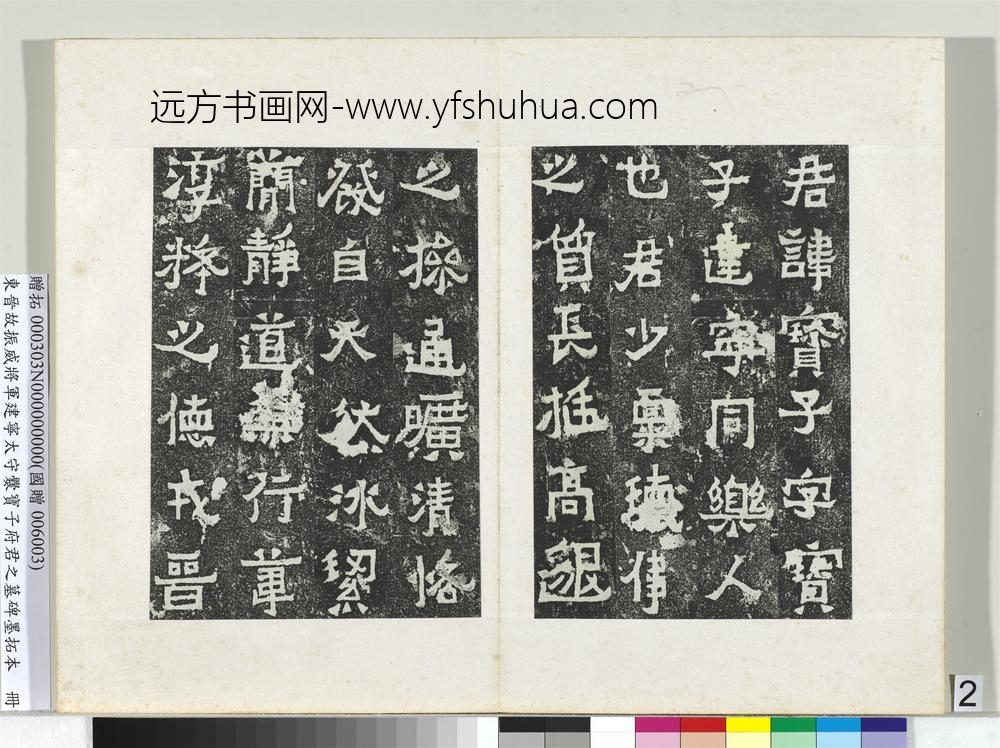 远方书画网-www.yfshuhua.com
君諱寳子字寳
子建寧同樂人
也君少稟瓌偉
之質長挺高邈
之操通曠清恪
發自天然冰絜
簡靜道兼行葦
淳粹之德戎晉
贈拓 000303N000000000(國贈 006003)
東晉故振威將軍建寧太守爨寶子府君之墓碑墨拓本 冊
2